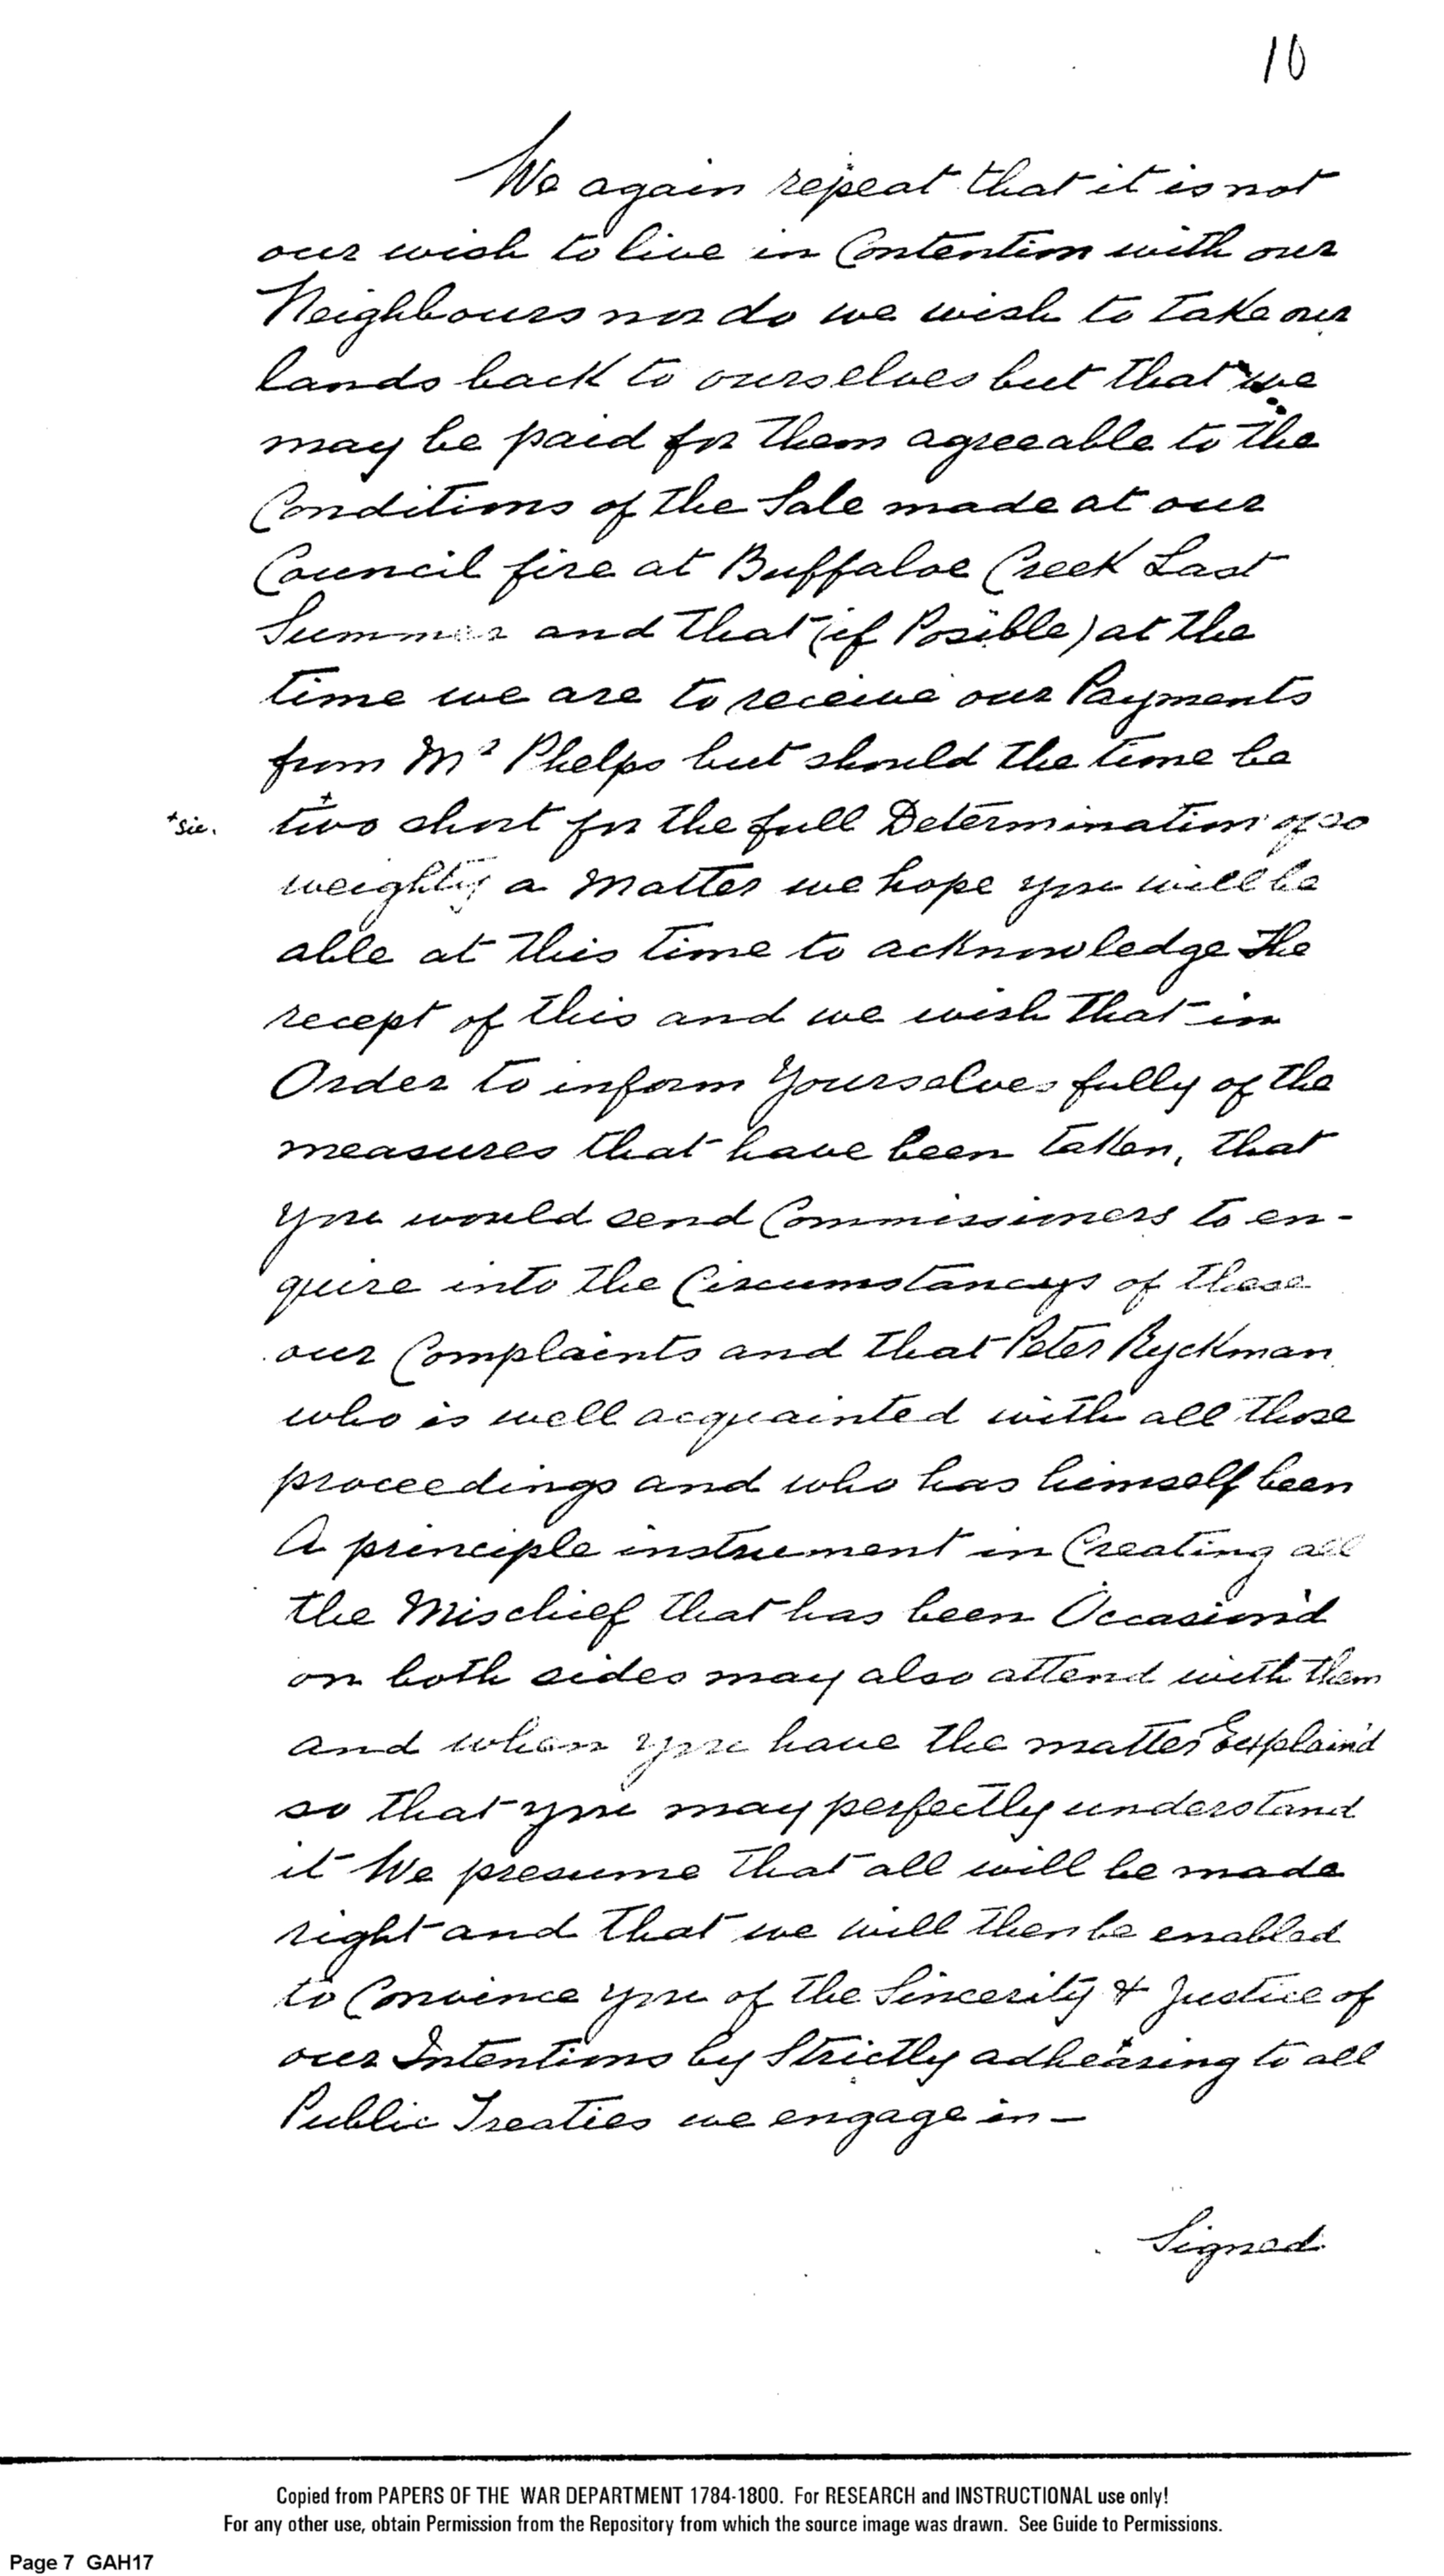 10
We again repeat that it is not
our wish to live in Contention with our
Neighbours nor do we wish to take our
lands back to ourselves but that we
may be paid for them agreeable to the
Conditions of the Sale made at our
Council fire at Buffaloe Creek Last
Summer and that (if Posible) at the
time we are to receive our Payments
from Mr Phelps but should the time be
+sic. two+ short for the full Determination of so
weighty a Matter we hope you will be
able at this time to acknowledge the
recept of this and we wish that in
Order to inform Yourselves fully of the
measures that have been taken, that
you would send Commissioners to en-
quire into the Circumstanceys of these
our Complaints and that Peter Ryckman
who is well acquainted with all those
proceedings and who has himself been
A principle instrument in Creating all
the Mischief that has been Occasion'd
on both sides may also attend with them
and when you have the matter Explain'd
so that you may perfectly understand
it We presume that all will be made
right and that we will then be enabled
to Convince you of the Sincerity & Justice of
our Intentions by Strictly adhearing to all
Public Treaties we engage in —
Signed
Copied from PAPERS OF THE WAR DEPARTMENT 1784-1800. For RESEARCH and INSTRUCTIONAL use only!
For any other use, obtain Permission from the Repository from which the source image was drawn. See Guide to Permissions.
Page 7 GAH17